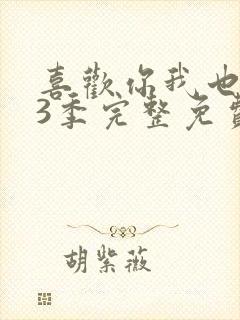 喜歡你我也
3季完整免費
胡紫薇